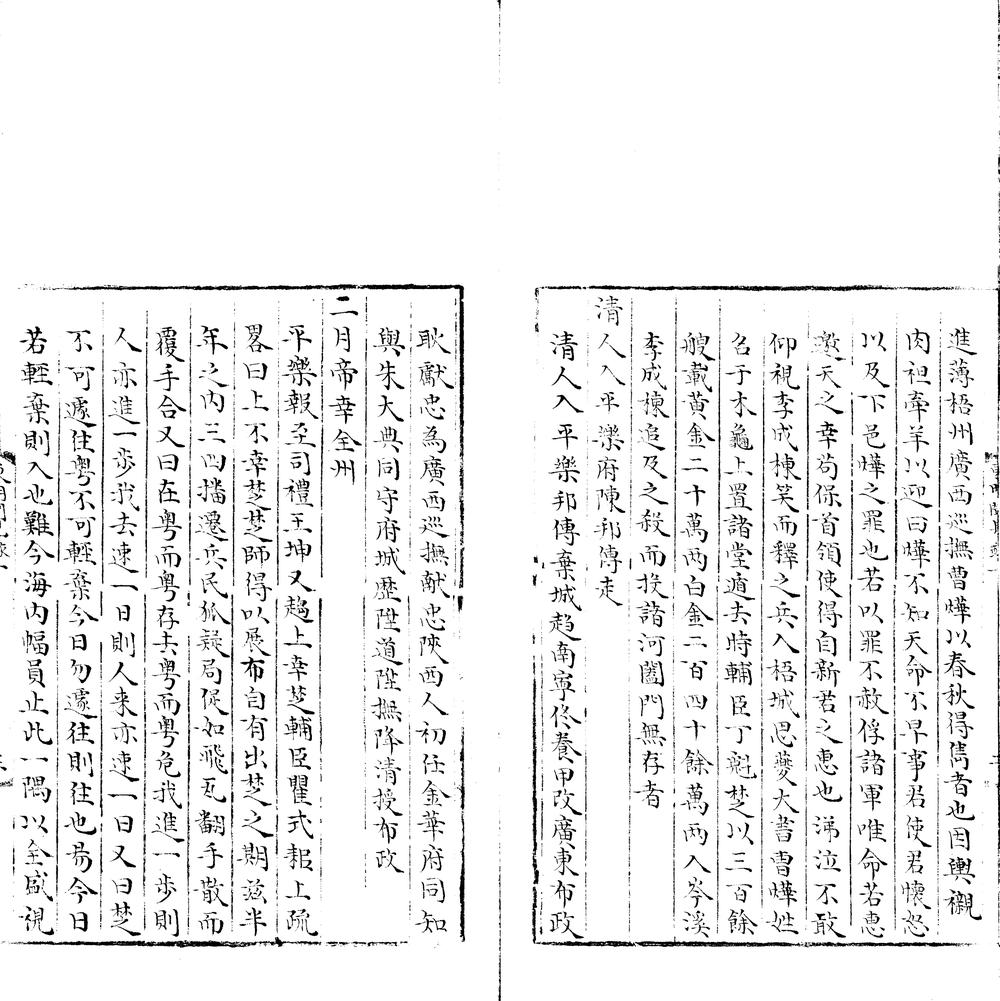 進薄梧州廣西巡撫曹燁以春秋得雋者也因輿櫬
肉袒牽羊以迎曰燁不知天命不早事君使君懷怒
以及下邑燁之罪也若以罪不赦俘諸軍唯命若惠
邀天之幸苟保首領使得自新君之惠也涕泣不敢
仰視李成棟笑而釋之兵入梧城思夔大書曹燁姓
名于木龜上置諸堂遁去時輔臣丁魁楚以三百餘
艘載黃金二十萬两白金二百四十餘萬两入岑溪
李成棟追及之殺而投諸河闔門無存者
清人入平樂府陳邦傳走
清人入平樂邦傳棄城趨南寧佟養甲改廣東布政
耿獻忠為廣西巡撫獻忠陝西人初任金華府同知
與朱大典同守府城歷陞道陞撫降清授布政
二月帝幸全州
平樂報至司禮王坤又趨上幸楚輔臣瞿式耜上疏
畧曰上不幸楚楚師得以展布自有出楚之期玆半
年之內三四播遷兵民狐疑局促如飛瓦翻手散而
覆手合又曰在粤而粤存去粤而粤危我進一步則
人亦進一步我去速一日則人来亦速一日又曰楚
不可遽往粤不可輕棄今日勿遽往則往也易今日
若輕棄則入也難今海內幅員止此一隅以全盛視